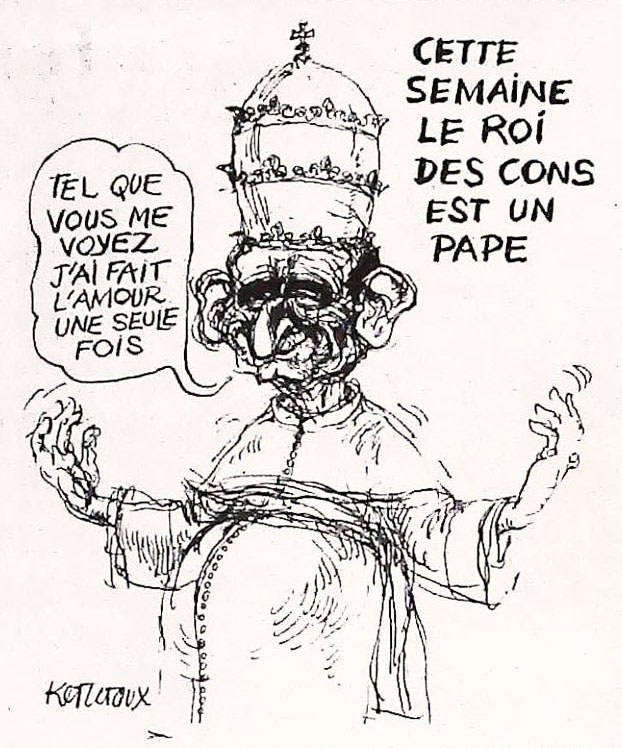 CETTE
SEMAINE
LE ROI
DES CONS
EST UN
PAPE
TEL QUE
VOUS ME
VOYEZ
J'AI FAIT
L'AMOUR
UNE SEULE
FOIS